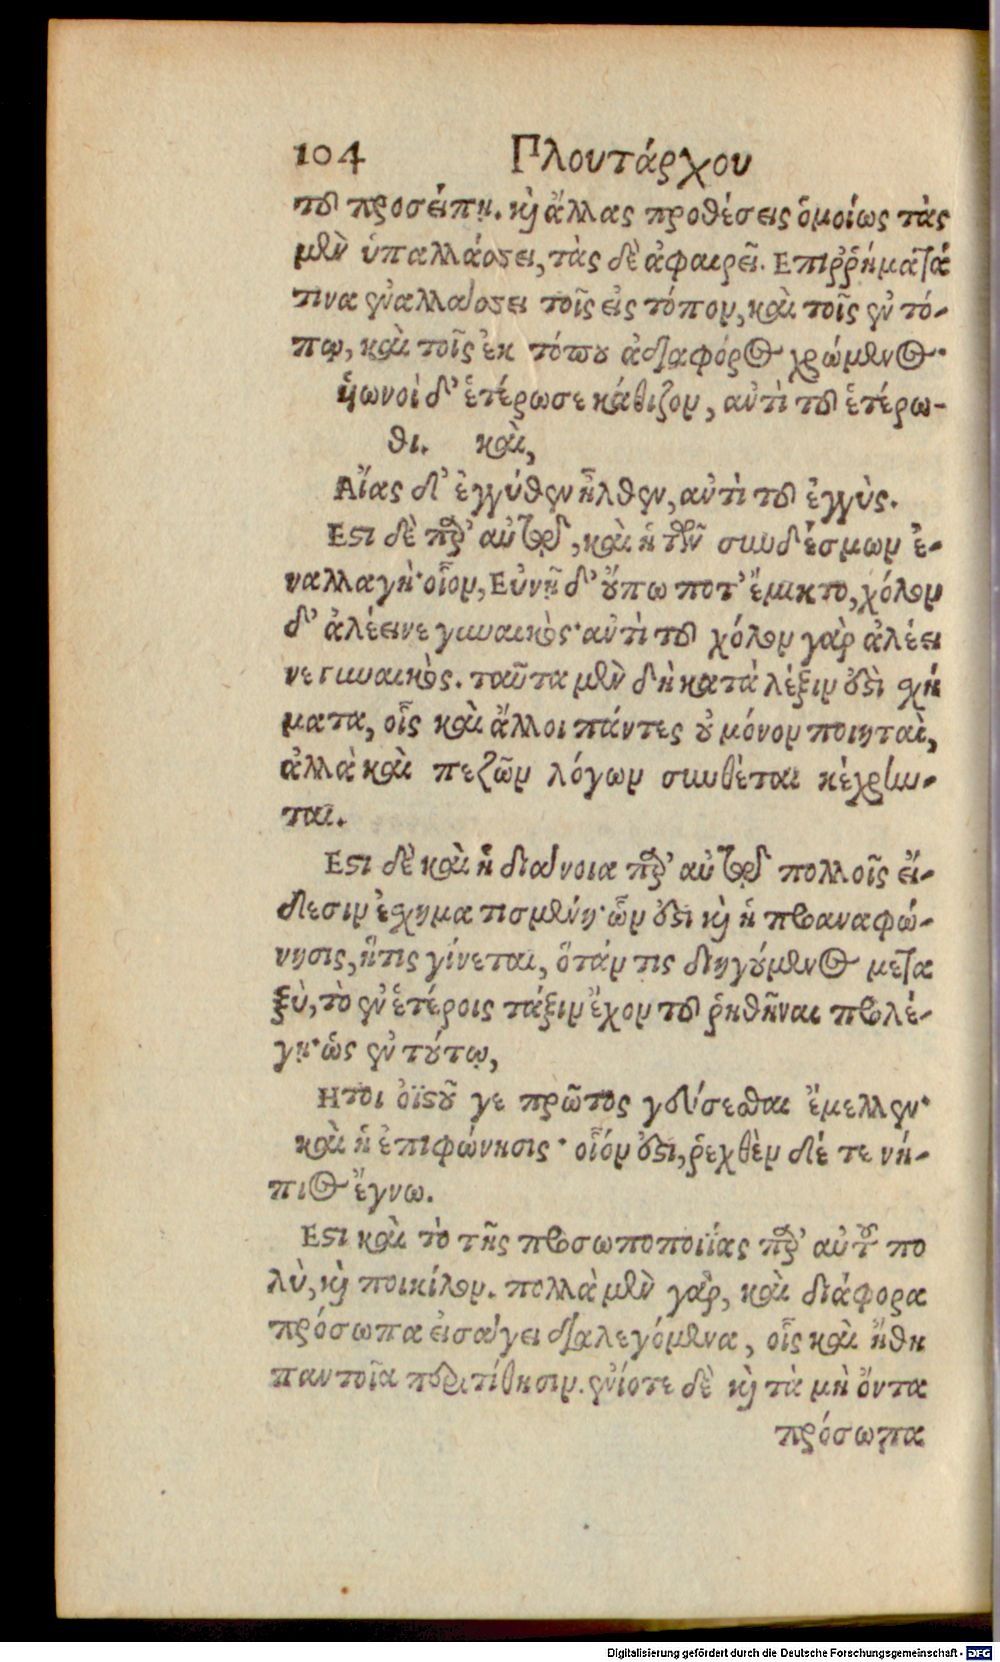 104 Πλουτάρχου
τοῦ προσείπῃ. καὶ ἄλλας προθέσεις ὁμοίως τὰς
μὲν ὑπαλλάσσει, τὰς δὲ ἀφαιρεῖ. Επιῤῥήματά
τινα ἐναλλάσσει τοῖς εἰς τόπον, καὶ τοῖς ἐν τό-
πῳ, καὶ τοῖς ἐκ τόπου ἀδιαφόρος χρώμενος·
ἡωνοὶ δ' ἑτέρωσε κάθιζον, αὐτὶ τοῦ ἑτέρω-
θι. καὶ,
Αἴας δ' ἐγγύθεν ἦλθεν, αὐτὶ τοῦ ἐγγὺς.
Εστι δὲ παρ' αὐτῷ, καὶ ἡ τῶν συνδέσμων ἐ-
ναλλαγὴ· οἷον, Εὐνῇ δ' οὔπω ποτ' ἔμικτο, χόλον
δ' ἀλέεινε γυναικὸς· αὐτὶ τοῦ χόλον γὰρ ἀλέει
νε γυναικὸς. ταῦτα μὲν δὴ κατὰ λέξιν ἐστὶ σχή
ματα, οἷς καὶ ἄλλοι πάντες οὐ μόνον ποιηταὶ,
ἀλλὰ καὶ πεζῶν λόγων συνθέται κέχρην-
ται.
Εστι δὲ καὶ ἡ διάνοια παρ' αὐτῷ πολλοῖς εἴ-
δεσιν ἐσχηματισμένη· ὧν ἐστι καὶ ἡ προαναφώ-
νησις, ἥτις γίνεται, ὅτάν τις διηγούμενος μετα
ξὺ, τὸ ἐν ἑτέροις τάξιν ἔχον τοῦ ῥηθῆναι προλέ-
γῃ· ὡς ἐν τούτῳ,
Ητοι ὀϊστοῦ γε πρῶτος γεύσεσθαι ἔμελλεν·
καὶ ἡ ἐπιφώνησις· οἷόν ἐστι, ῥεχθὲν δέ τε νή-
πιος ἔγνω.
Εστι καὶ τὸ τῆς προσωποποιΐας παρ' αὐτῷ πο
λὺ, καὶ ποικίλον. πολλὰ μὲν γὰρ, καὶ διάφορα
πρόσωπα εἰσάγει διαλεγόμενα, οἷς καὶ ἤθη
παντοῖα περιτίθησιν. ἐνίοτε δὲ καὶ τὰ μὴ ὄντα
πρόσωπα
Digitalisierung gefördert durch die Deutsche Forschungsgemeinschaft - DFG